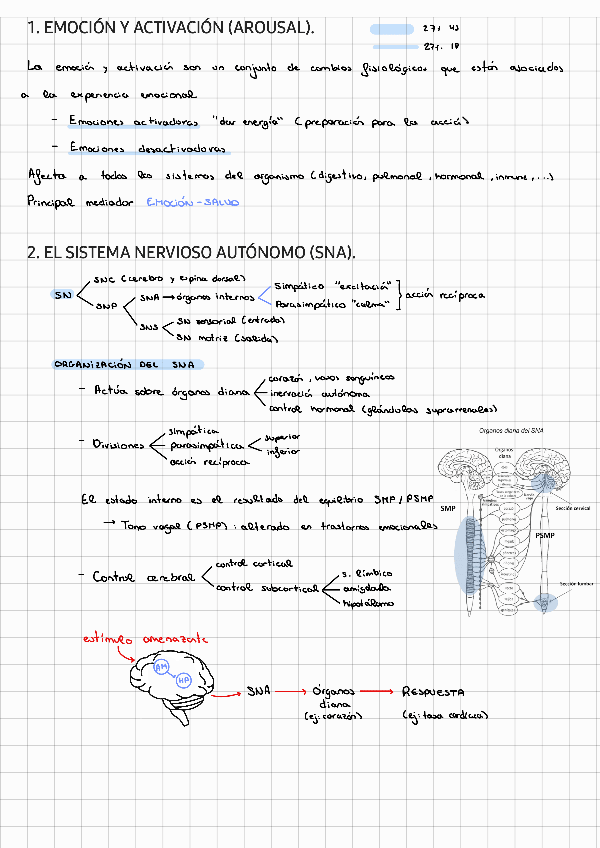 1. EMOCIÓN Y ACTIVACIÓN (AROUSAL).
La emoción y activación son un conjunto de cambios fisiológicos que están asociados
a la experiencia emocional
- Emociones activadoras "dar energía" (preparación para la acción)
- Emociones desactivadoras
Afecta a todos los sistemas del organismo (digestivo, pulmonal, hormonal, inmune, ...)
Principal mediador EMOCIÓN-SALUD
2. EL SISTEMA NERVIOSO AUTÓNOMO (SNA).
SN
SNC (cerebro y espina dorsal)
SNP
SNA → órganos internos
Simpático "excitación"
Parasimpático "calma"
acción recíproca
SNS
SN sensorial (entrada)
SN motriz (salida)
ORGANIZACIÓN DEL SNA
- Actúa sobre órganos diana
corazón, vasos sanguíneos
inervación autónoma
control hormonal (glándulas suprarrenales)
- Divisiones
simpática
parasimpática
superior
inferior
acción recíproca
Organos diana del SNA
Organos
diana
SMP
Sección cervical
PSMP
Sección lumbar
El estado interno es el resultado del equilibrio SMP/PSMP
→ Tono vagal (PSMP): alterado en trastornos emocionales
- Control cerebral
control cortical
control subcortical
s. límbico
amígdala
hipotálamo
estímulo amenazante
AM
HA
SNA → Órganos → RESPUESTA
diana
(ej: corazón) (ej: tasa cardíaca)